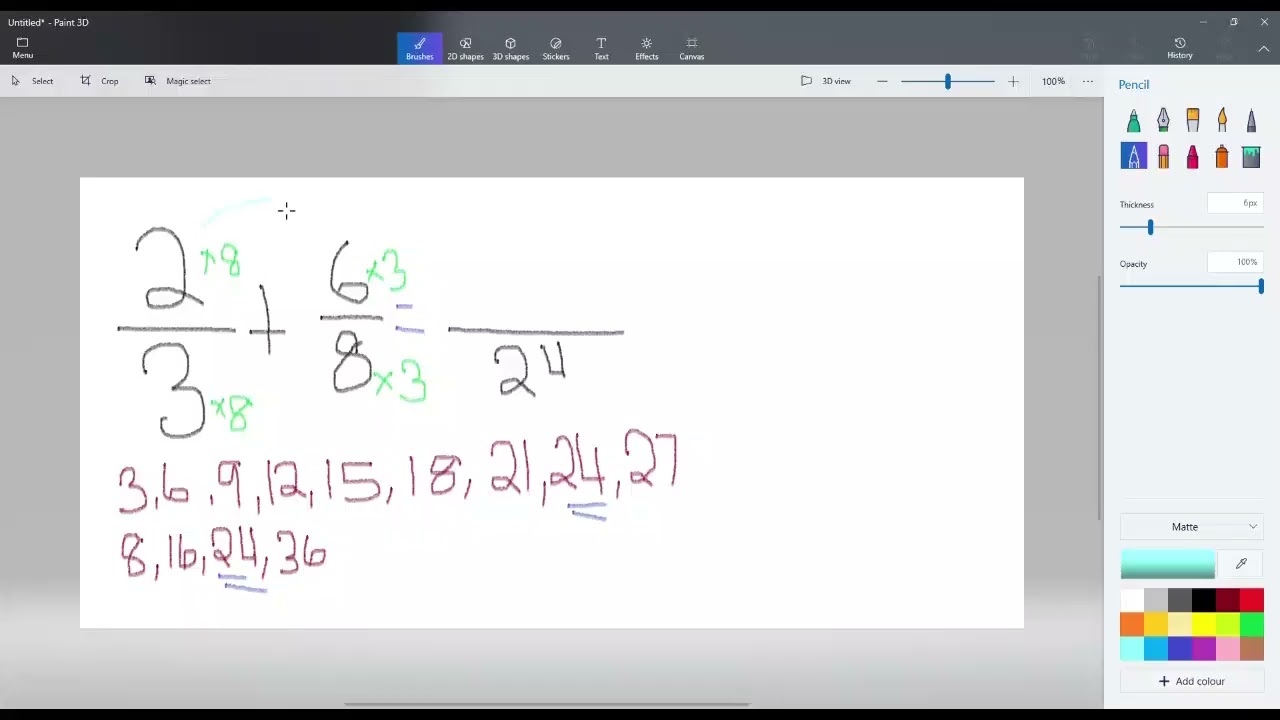 Untitled* - Paint 3D
Menu
Brushes 2D shapes 3D shapes Stickers Text Effects Canvas
History
Select Crop Magic select
3D view 100%
Pencil
Thickness 6px
Opacity 100%
Matte
+ Add colour
2 ×8 + 6 ×3 =
3 ×8 8 ×3 24
3, 6, 9, 12, 15, 18, 21, 24, 27
8, 16, 24, 36